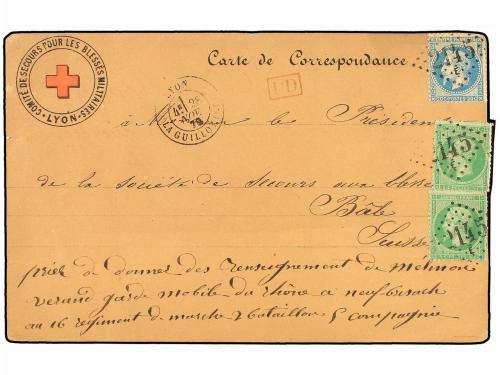 COMITÉ DE SECOURS POUR LES BLESSÉS MILITAIRES
LYON
Carte de Correspondance
LYON
LA GUILLOTIÈRE
PD
2145
145
2145
à Monsieur le Président
de la société de secours aux blessés
Bâle
Suisse
prière de donner des renseignement de
verand garde mobile du rhône a neuf brisach
au 16 regiment de marche 2 bataillon 5 compagnie